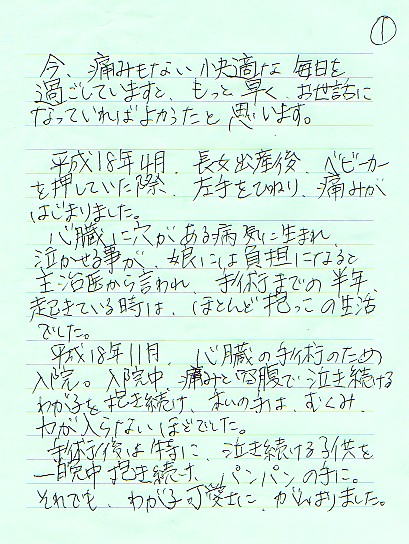 ①
今、痛みもない快適な毎日を
過ごしていますと、もっと早く、お世話に
なっていればよかったと思います。
平成18年4月、長女出産後、ベビーカー
を押していた際、左手をひねり、痛みが
はじまりました。
心臓に穴がある病気に生まれ、
泣かせる事が、娘には負担になると
主治医から言われ、手術までの半年、
起きている時は、ほとんど抱っこの生活
でした。
平成18年11月、心臓の手術のため
入院。入院中、痛みと空腹で泣き続ける
わが子を抱き続け、私の手は、むくみ、
力が入らないほどでした。
手術後は特に、泣き続ける子供を
一晩中抱き続け、パンパンの手に。
それでも、わが子可愛さに、がんばりました。